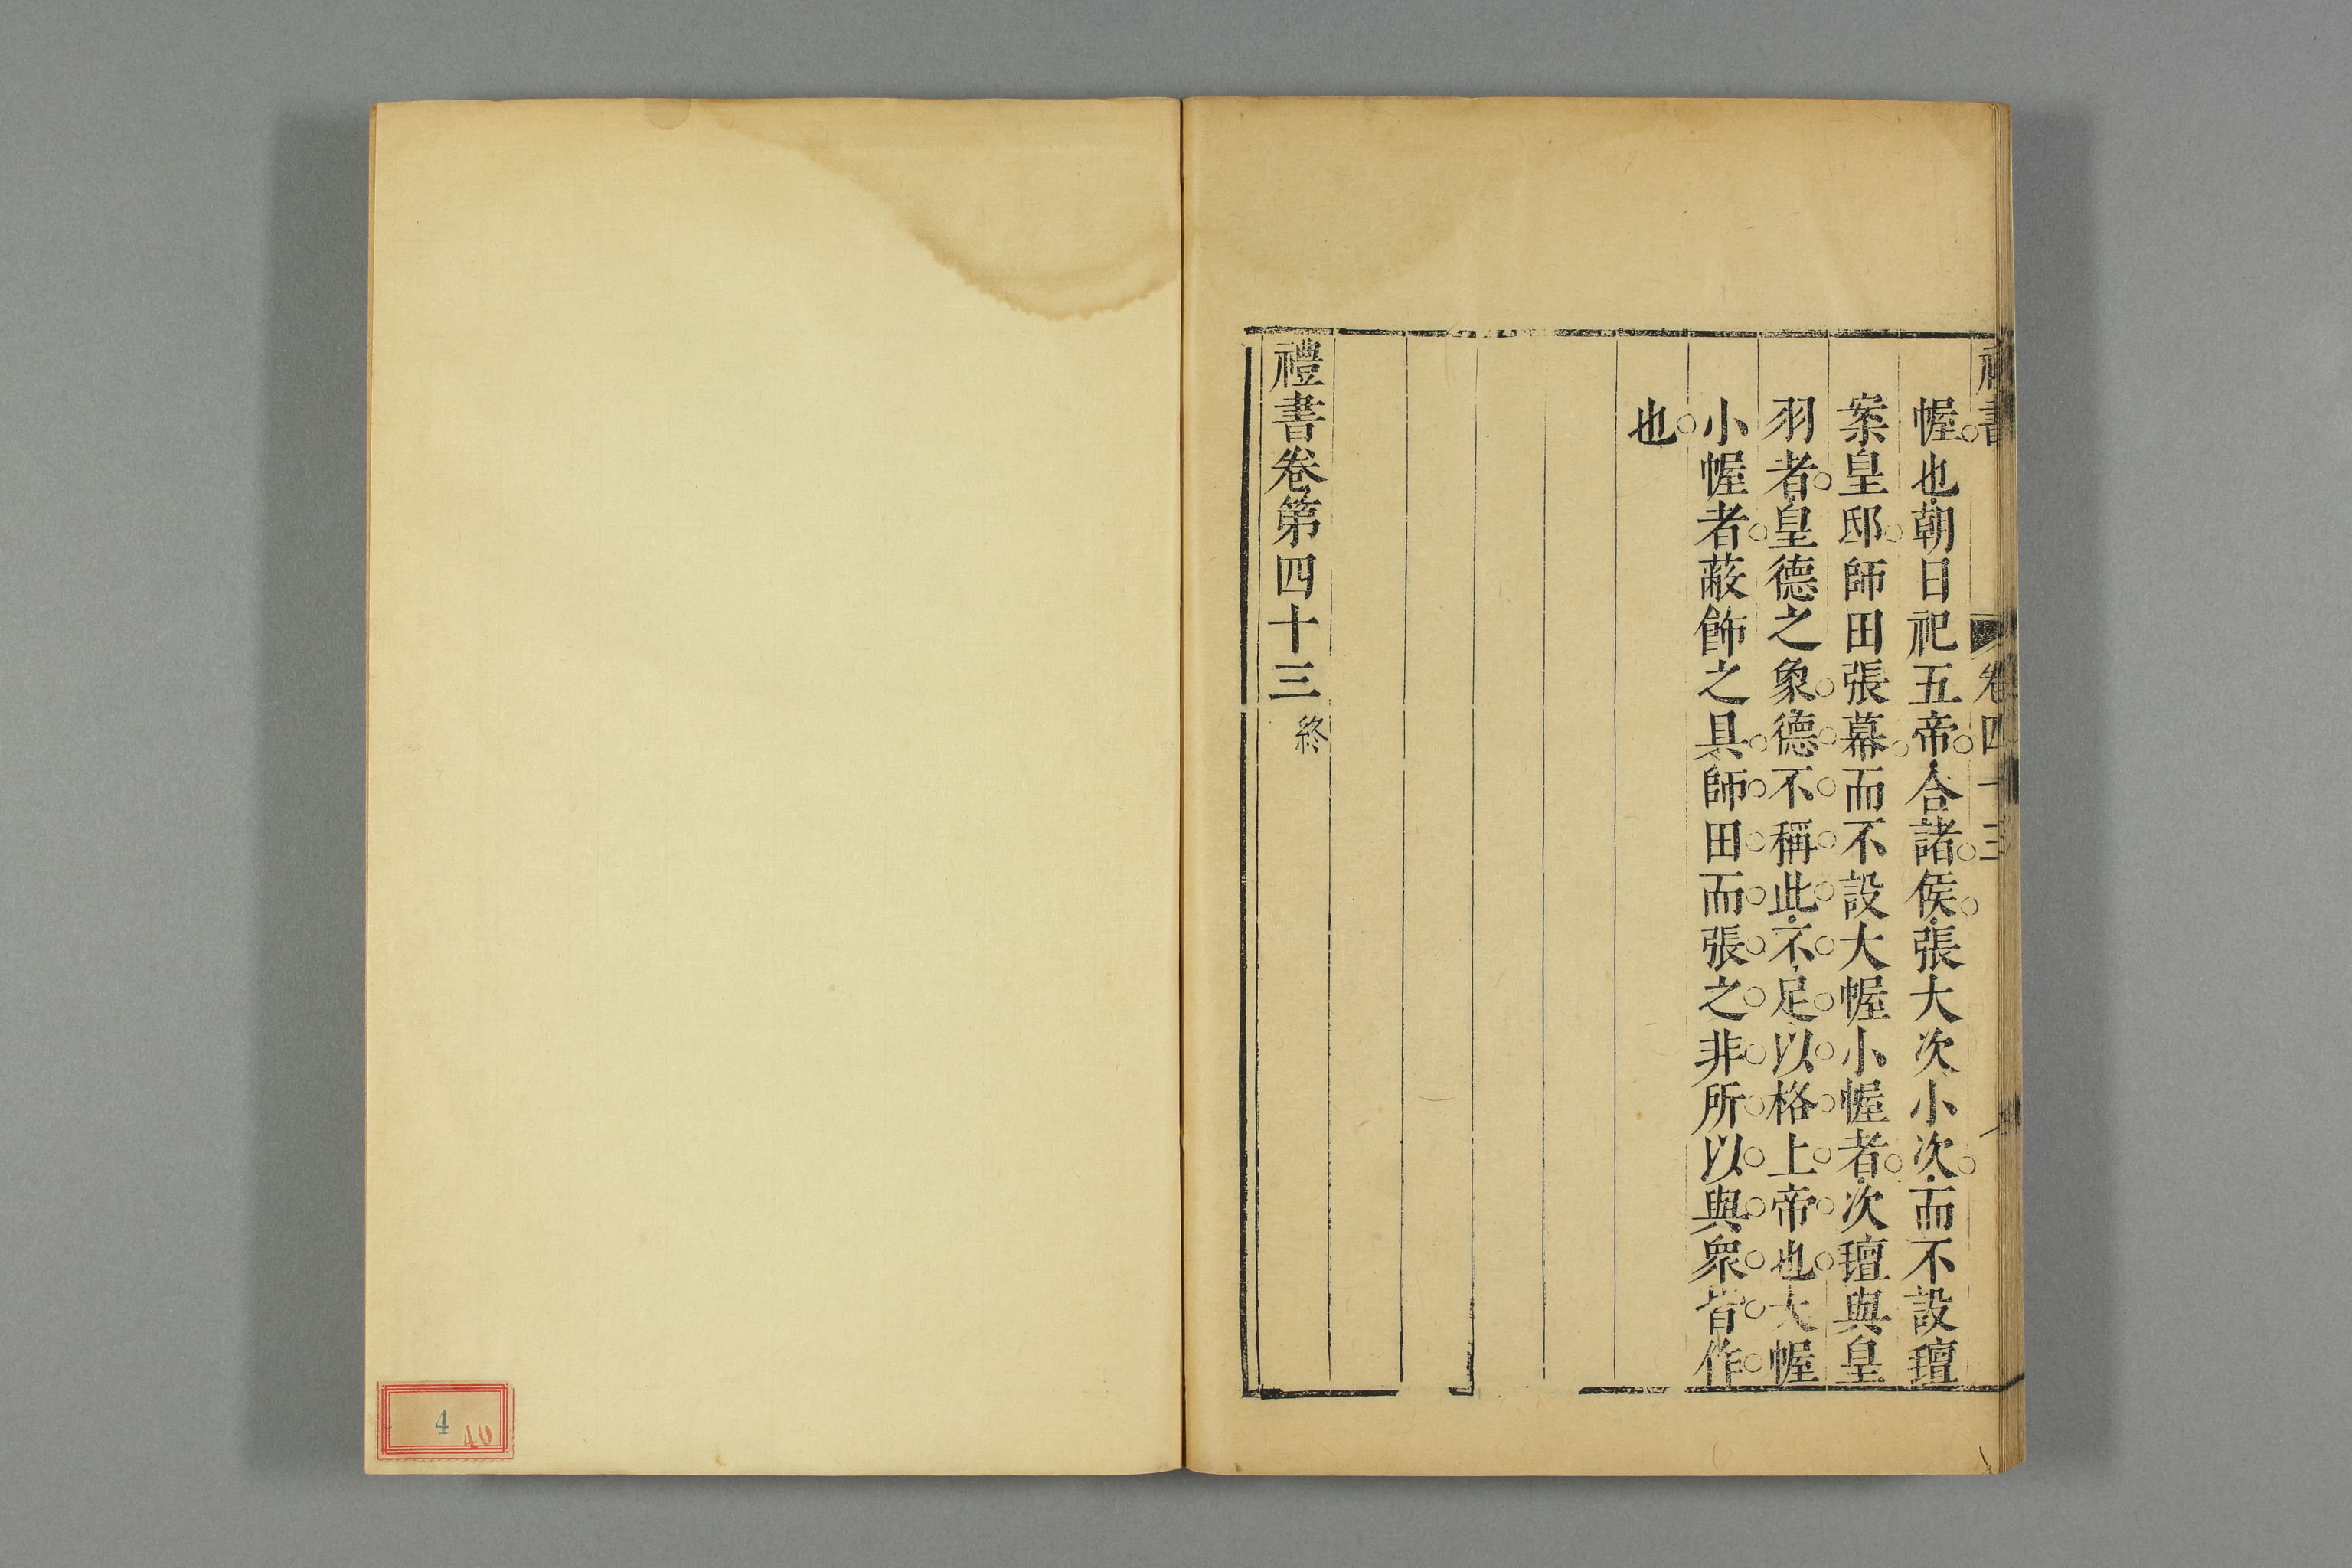 禮書 卷四十三
幄也朝日祀五帝合諸侯張大次小次而不設氊
案皇邸師田張幕而不設大幄小幄者次氊與皇
羽者皇德之象德不稱此不足以格上帝也大幄
小幄者蔽飾之具師田而張之非所以與衆眚作
也
禮書卷第四十三終
4
40